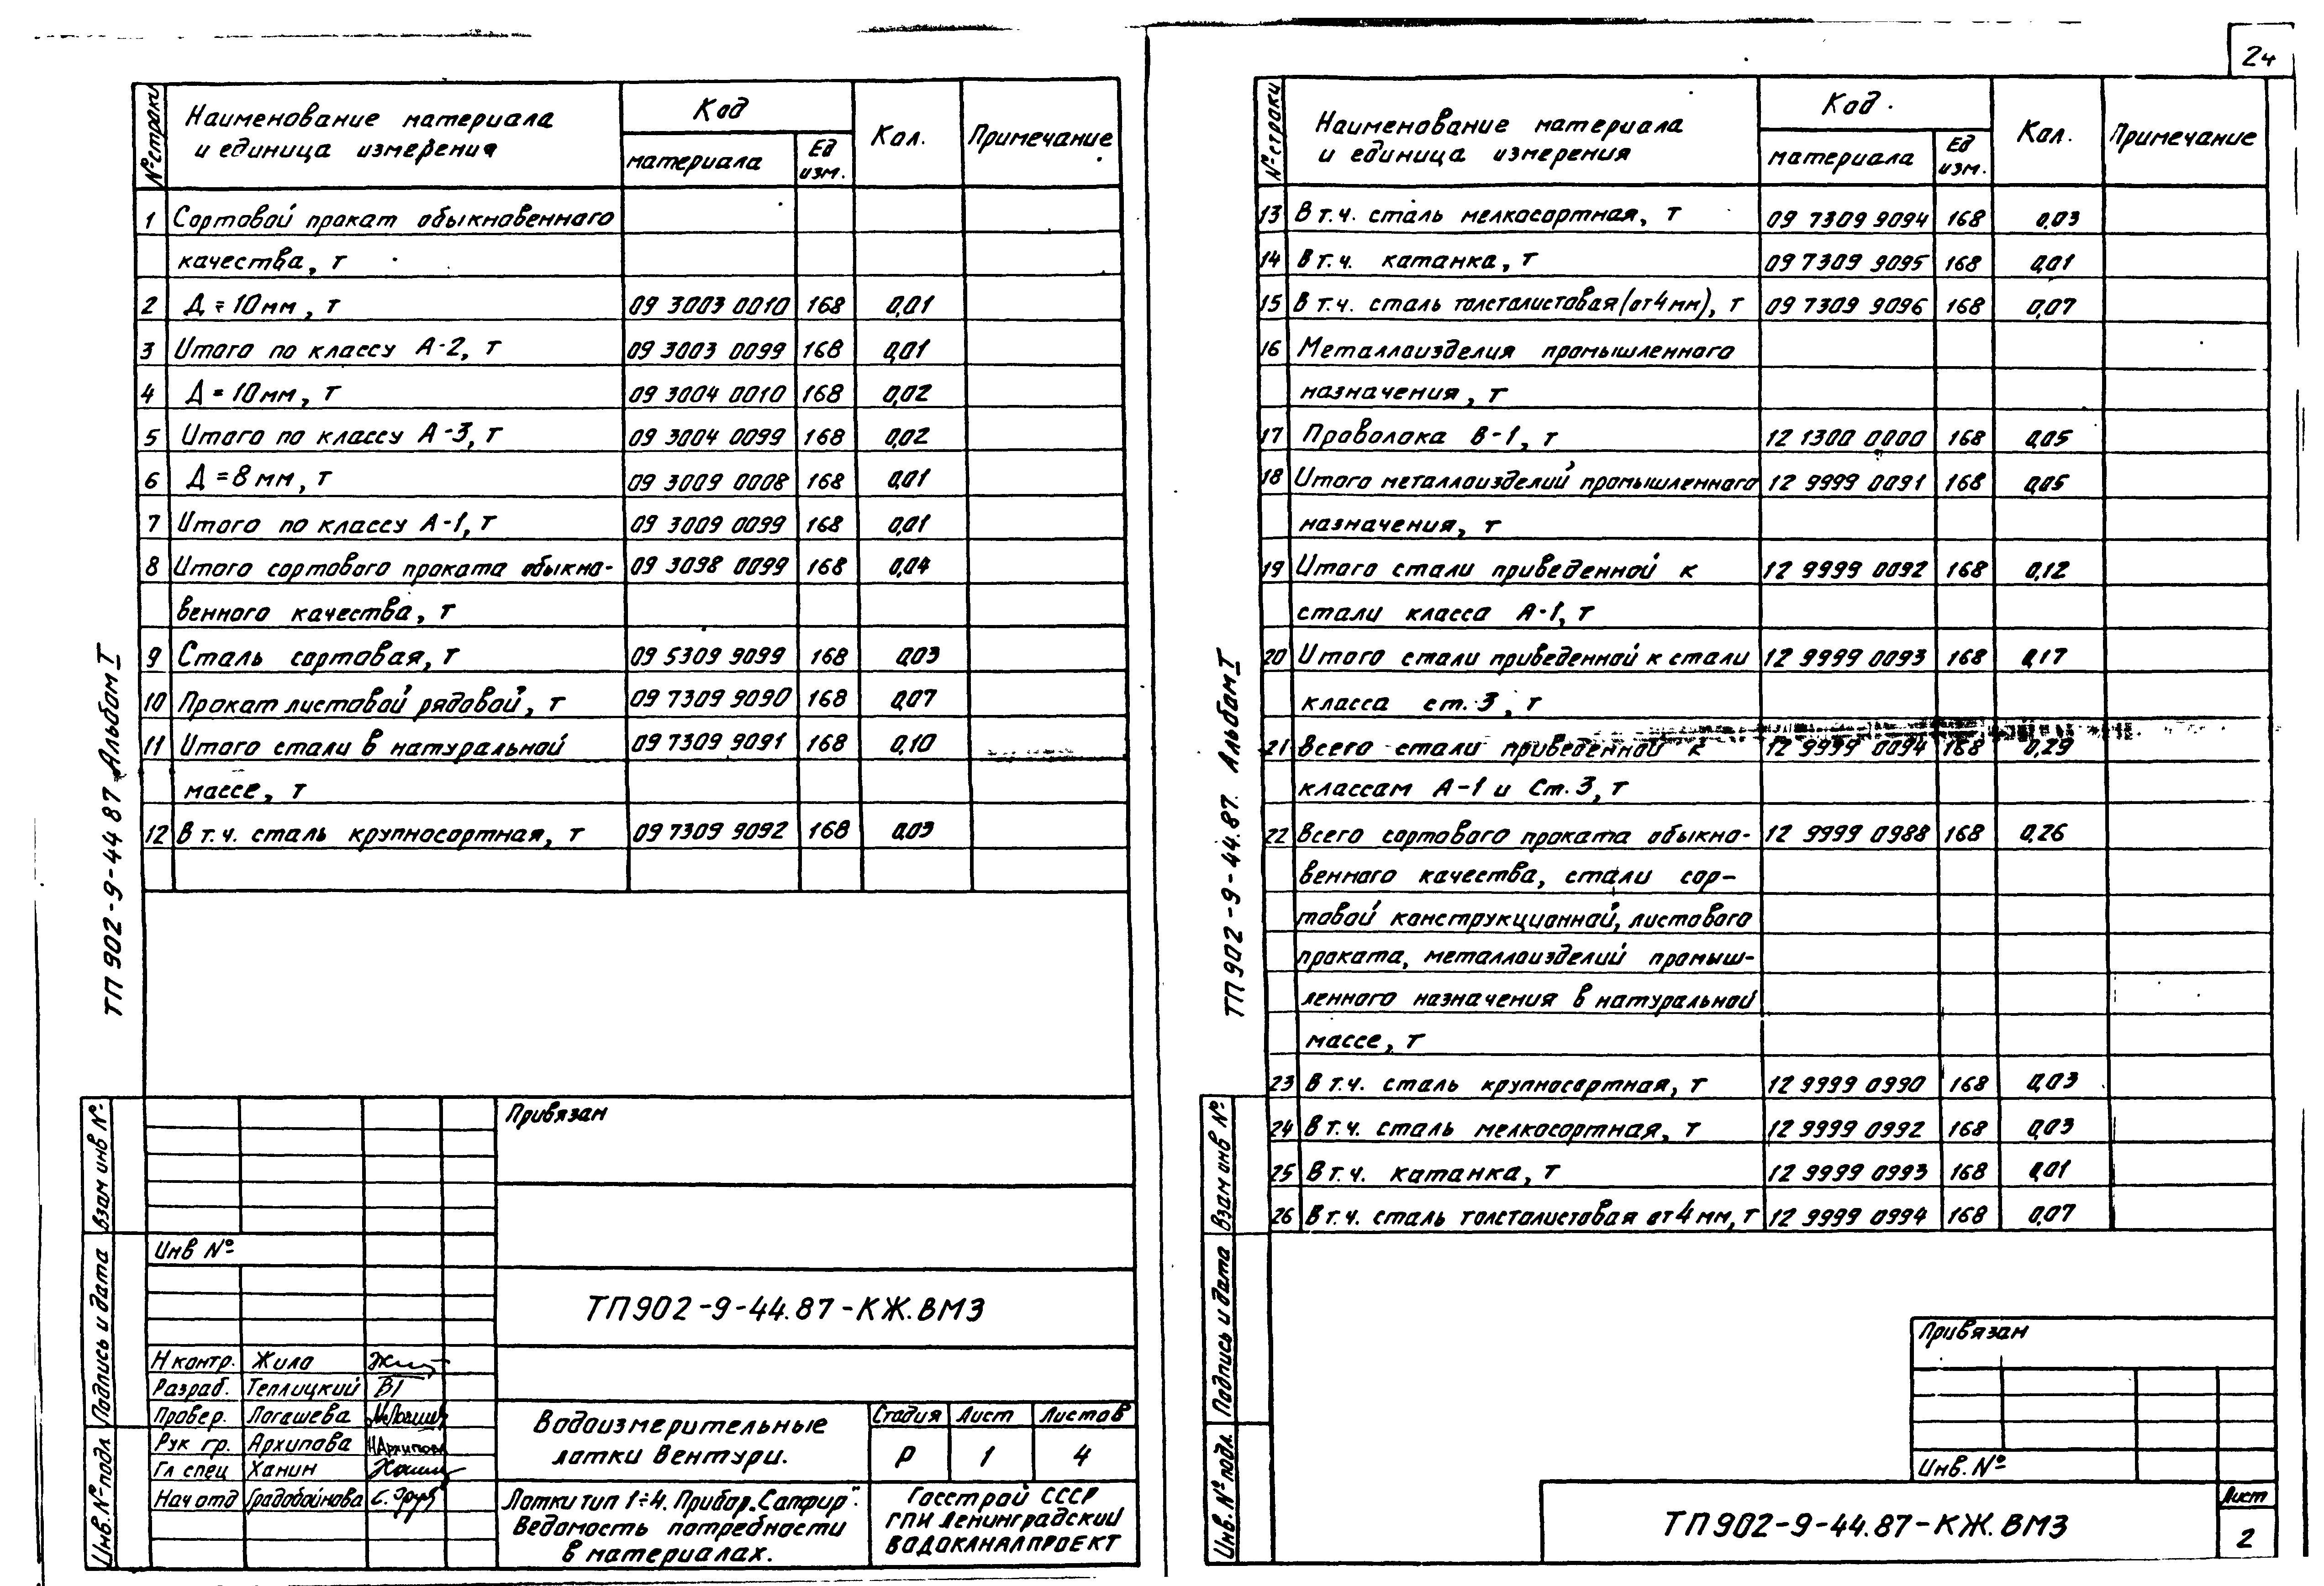 24
№ строки
Наименование материала
и единица измерения
Код
материала
Ед
изм.
Кол.
Примечание
1 Сортовой прокат обыкновенного
качества, т
2 Д = 10 мм, т 09 3003 0010 168 0,01
3 Итого по классу А-2, т 09 3003 0099 168 0,01
4 Д = 10 мм, т 09 3004 0010 168 0,02
5 Итого по классу А-3, т 09 3004 0099 168 0,02
6 Д = 8 мм, т 09 3009 0008 168 0,01
7 Итого по классу А-1, т 09 3009 0099 168 0,01
8 Итого сортового проката обыкно- 09 3098 0099 168 0,04
венного качества, т
9 Сталь сортовая, т 09 5309 9099 168 0,03
10 Прокат листовой рядовой, т 09 7309 9090 168 0,07
11 Итого стали в натуральной 09 7309 9091 168 0,10
массе, т
12 В т.ч. сталь крупносортная, т 09 7309 9092 168 0,03
ТП 902-9-44 87 Альбом I
Взам инв №
Подпись и дата
Инв. № подл
Привязан
Инв №
ТП902-9-44.87-КЖ.ВМ3
Н контр. Жила
Разраб. Теплицкий
Провер. Логашева
Рук гр. Архипова
Гл спец Ханин
Нач отд Градобойнова
Водоизмерительные
лотки Вентури.
Стадия Лист Листов
Р 1 4
Лотки тип 1÷4. Прибор „Сапфир".
Ведомость потребности
в материалах.
Госстрой СССР
ГПИ Ленинградский
ВОДОКАНАЛПРОЕКТ
№ строки
Наименование материала
и единица измерения
Код.
материала
Ед
изм.
Кол.
Примечание
13 В т.ч. сталь мелкосортная, т 09 7309 9094 168 0,03
14 В т.ч. катанка, т 09 7309 9095 168 0,01
15 В т.ч. сталь толстолистовая (от 4 мм), т 09 7309 9096 168 0,07
16 Металлоизделия промышленного
назначения, т
17 Проволока В-1, т 12 1300 0000 168 0,05
18 Итого металлоизделий промышленного 12 9999 0091 168 0,05
назначения, т
19 Итого стали приведенной к 12 9999 0092 168 0,12
стали класса А-1, т
20 Итого стали приведенной к стали 12 9999 0093 168 0,17
класса ст. 3, т
21 Всего стали приведенной к 12 9999 0094 168 0,29
классам А-1 и Ст. 3, т
22 Всего сортового проката обыкно- 12 9999 0988 168 0,26
венного качества, стали сор-
товой конструкционной, листового
проката, металлоизделий промыш-
ленного назначения в натуральной
массе, т
23 В т.ч. сталь крупносортная, т 12 9999 0990 168 0,03
24 В т.ч. сталь мелкосортная, т 12 9999 0992 168 0,03
25 В т.ч. катанка, т 12 9999 0993 168 0,01
26 В т.ч. сталь толстолистовая от 4 мм, т 12 9999 0994 168 0,07
ТП 902-9-44.87. Альбом I
Взам инв №
Подпись и дата
Инв. № подл.
Привязан
Инв. №
ТП902-9-44.87-КЖ.ВМ3
Лист
2